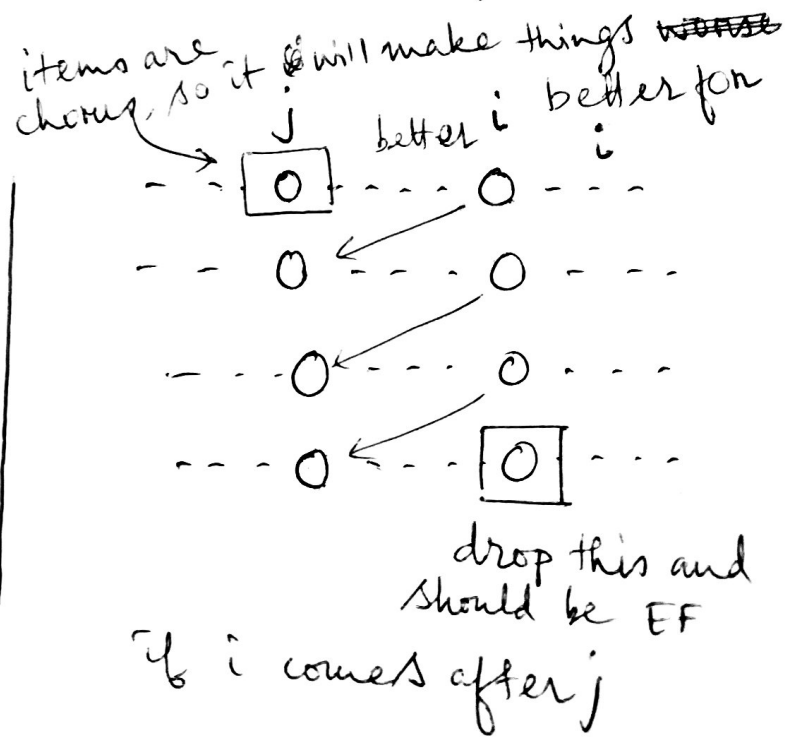 items are
chorus, so it will make things worse
better for
i
j
better i
drop this and
should be EF
if i comes after j